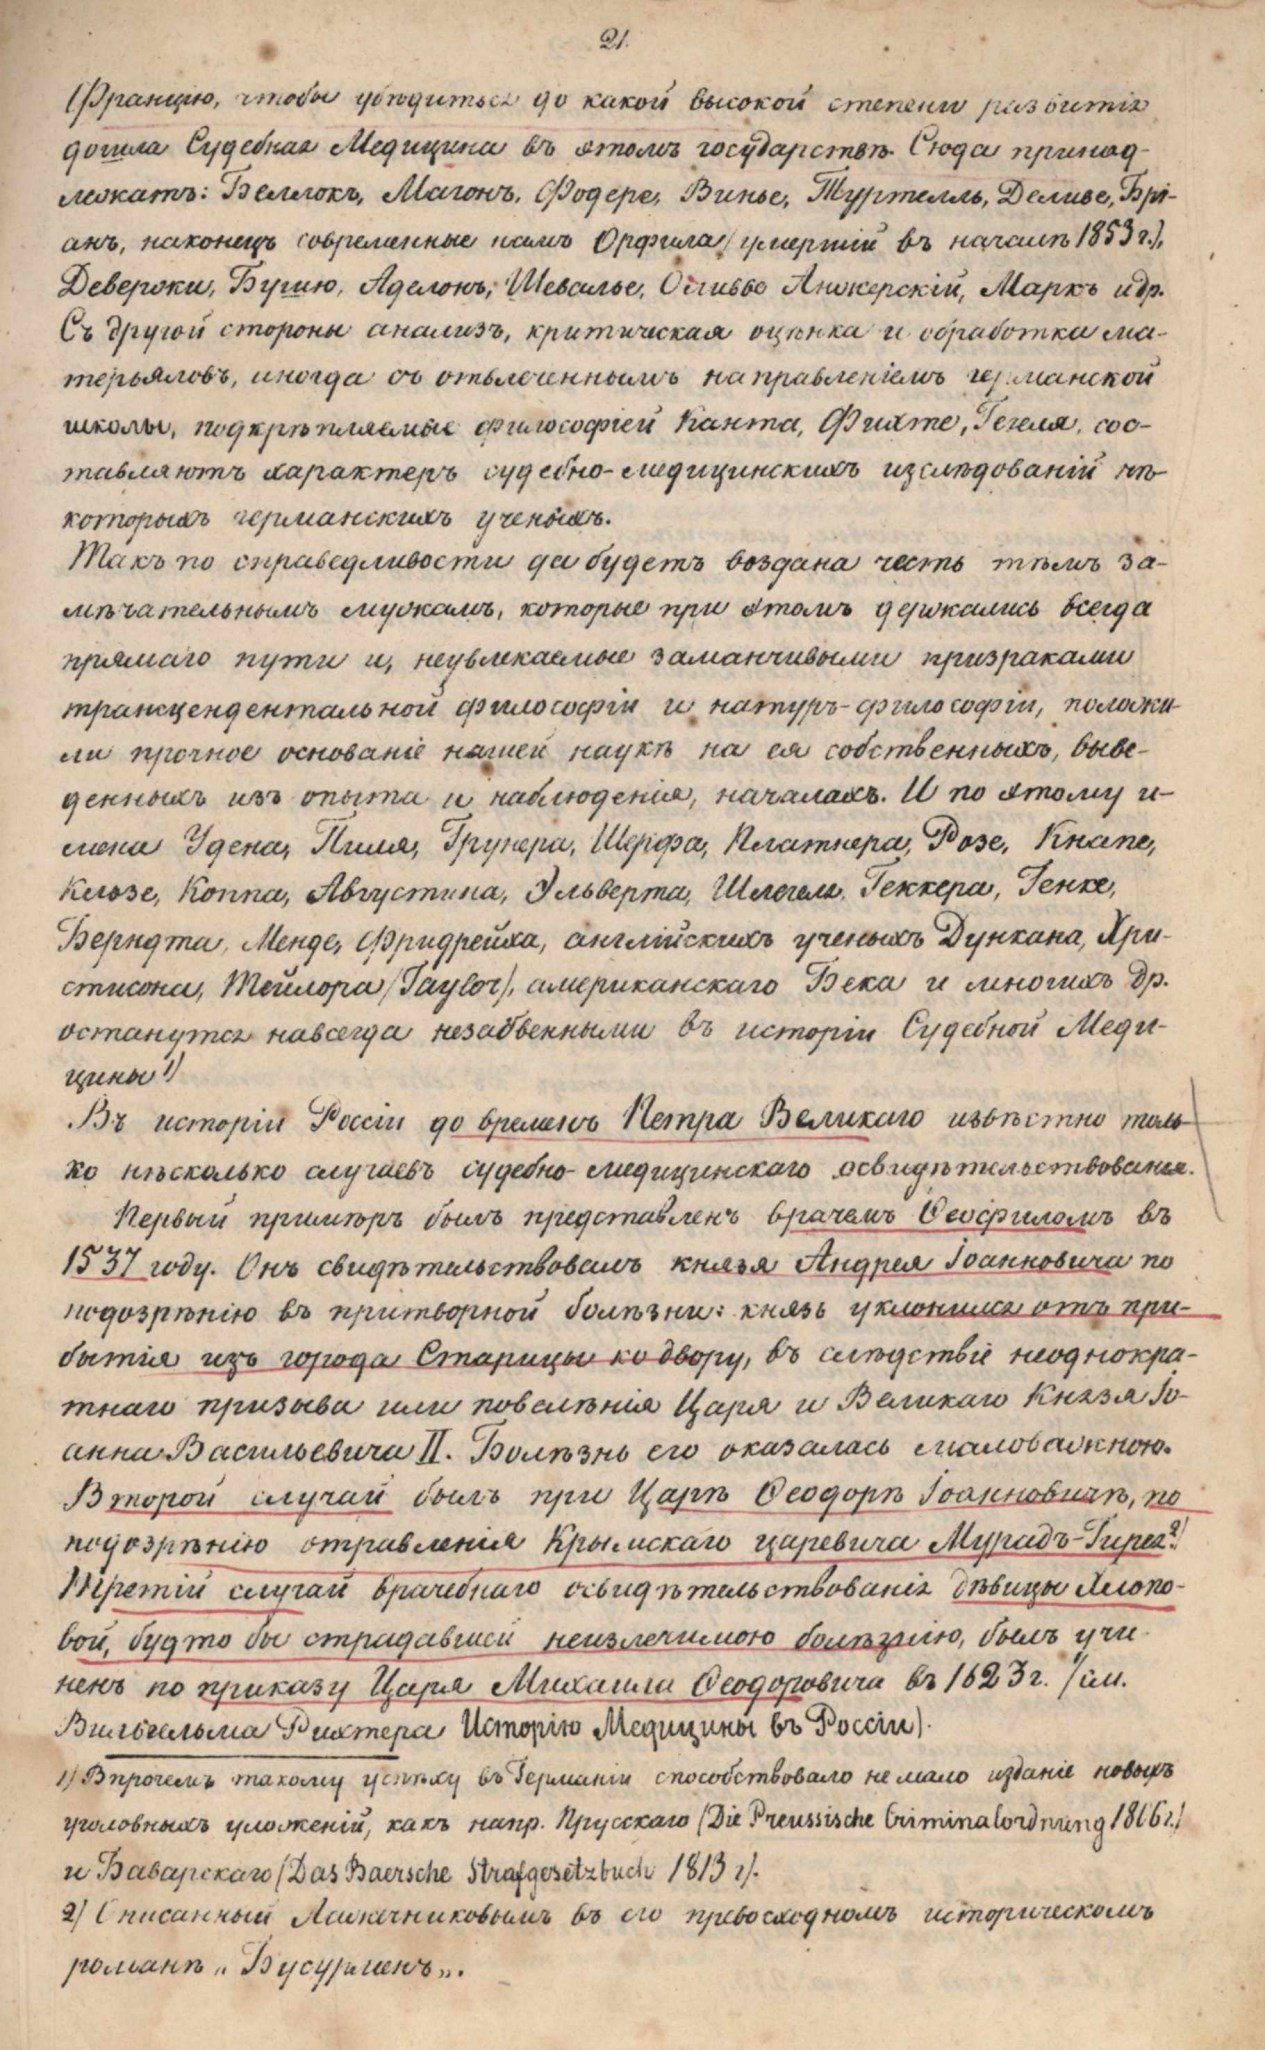 21.
Францію, чтобы убѣдиться до какой высокой степени развитія
дошла Судебная Медицина въ этомъ государствѣ. Сюда принад-
лежатъ: Беллокъ, Магонъ, Фодере, Винье, Туртелль, Деливе, Брі-
анъ, наконецъ современные намъ Орфила (умершій въ началѣ 1853 г.),
Девержи, Бушю, Аделонъ, Шевалье, Оливье Анжерскій, Маркъ и др.
Съ другой стороны анализъ, критическая оцѣнка и обработка ма-
терьяловъ, иногда съ отвлеченнымъ направленіемъ германской
школы, подкрѣпляемые философіей Канта, Фихте, Гегеля, сос-
тавляютъ характеръ судебно-медицинскихъ изслѣдованій нѣ-
которыхъ германскихъ ученыхъ.
Такъ по справедливости да будетъ воздана честь тѣмъ за-
мѣчательнымъ мужамъ, которые при этомъ держались всегда
прямаго пути и, неувлекаемые заманчивыми призраками
трансцендентальной философіи и натуръ-философіи, положи-
ли прочное основаніе нашей наукѣ на ея собственныхъ, выве-
денныхъ изъ опыта и наблюденія, началахъ. И по этому и-
мена Удена, Пиля, Грунера, Шерфа, Платнера, Розе, Кнапе,
Клозе, Коппа, Августина, Эльверта, Шлегеля, Геккера, Генке,
Берндта, Менде, Фридрейха, англійскихъ ученыхъ Дункана, Хри-
стисона, Тейлора (Taylor), американскаго Бека и многихъ др.
останутся навсегда незабвенными въ исторіи Судебной Меди-
цины 1)
Въ исторіи Россіи до временъ Петра Великаго извѣстно толь-
ко нѣсколько случаевъ судебно-медицинскаго освидѣтельствованія.
Первый примѣръ былъ представленъ врачемъ Ѳеофиломъ въ
1537 году. Онъ свидѣтельствовалъ князя Андрея Іоанновича по
подозрѣнію въ притворной болѣзни: князь уклонился отъ при-
бытія изъ города Старицы ко двору, въ слѣдствіе неоднокра-
тнаго призыва или повелѣнія Царя и Великаго Князя Іо-
анна Васильевича II. Болѣзнь его оказалась маловажною.
Второй случай былъ при Царѣ Ѳеодорѣ Іоанновичѣ, по
подозрѣнію отравленія Крымскаго царевича Мурадъ-Гирея 2)
Третій случай врачебнаго освидѣтельствованія дѣвицы Хлопо-
вой, будто бы страдавшей неизлечимою болѣзнію, былъ учи-
ненъ по приказу Царя Михаила Ѳеодоровича въ 1623 г. (см.
Вильгельма Рихтера Исторію Медицины въ Россіи).
1) Впрочемъ такому успѣху въ Германіи способствовало не мало изданіе новыхъ
уголовныхъ уложеній, какъ напр. Прусскаго (Die Preussische Criminalordnung 1806 г.)
и Баварскаго (Das Baersche Strafgesetzbuch 1813 г).
2) Описанный Лажечниковымъ въ его превосходномъ историческомъ
романѣ „Бусурманъ„.